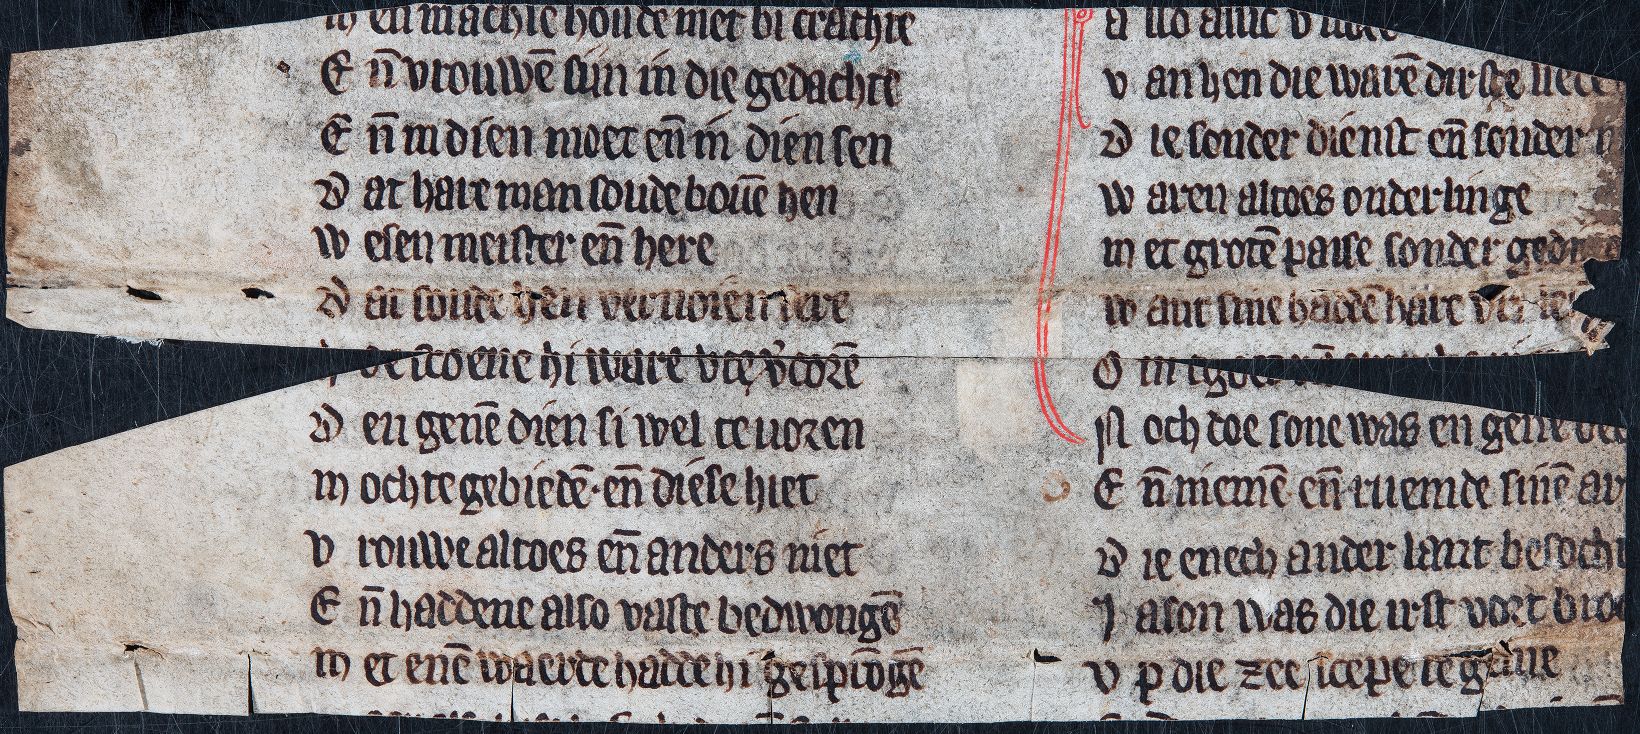 m en machte houde met bi crachte
E n̄ vrouwē sijn in die gedachte
E n̄ in dien moet en̄ in dien sen
D at hare man soude bouē hen
W esen meister en̄ here
D at soude hen vernoien sere
scoene hi ware vte v̓corē
D en genē dien si wel te uoren
m ochte gebiedē · en̄ diese hiet
V rouwe altoes en̄ anders niet
E n̄ haddene also vaste bedwongē
m et enē waerde hadde hi gesprōgē
V an hen die warē dirste
D ie sonder dienst en̄ sonder
W aren altoes onderlinge
m et grotē paise sonder
W ant sine haddē hare
O m
N och doe sone was en gene
E n̄ niemē en̄ ruemde sinē
D ie enech ander lant besocht
J ason was die irst vort
V p die zee scepe te gane